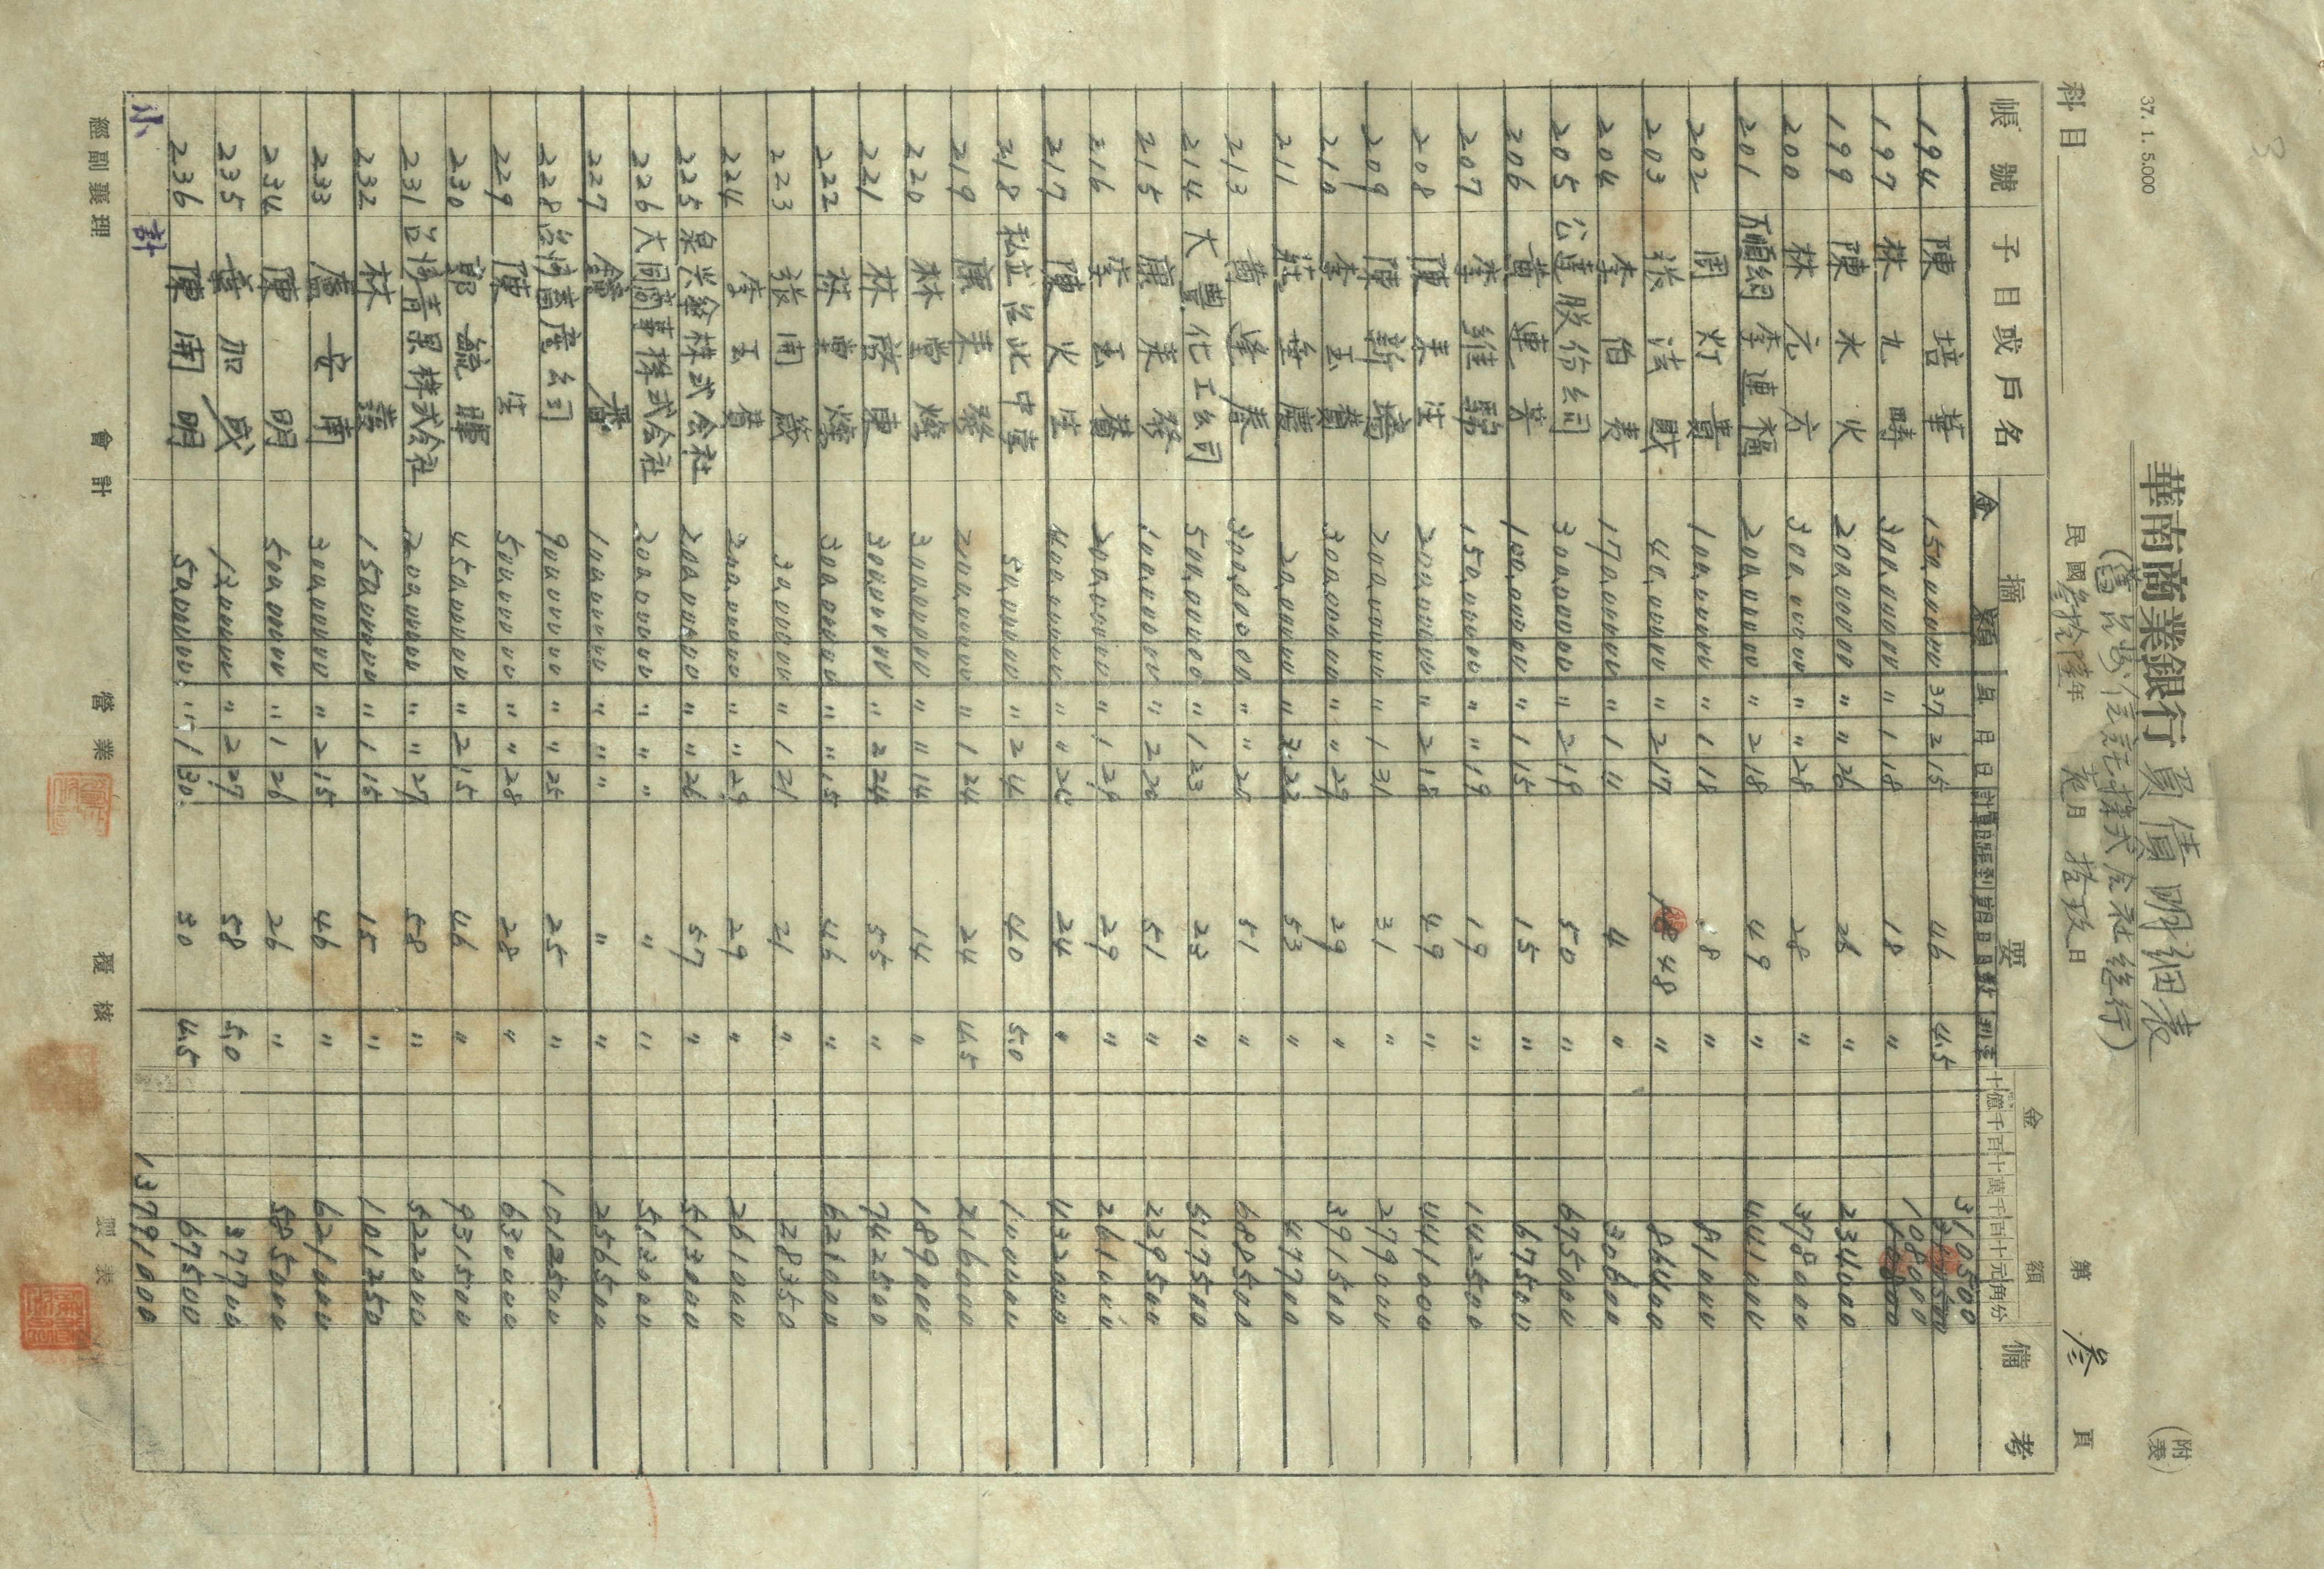 37. 1. 5.000
華南商業銀行負債明細表
(舊台灣信託株式会社経行)
(附表)
科目
民國叁拾陸年 月 拾玖日
第 叁 頁
帳號 子目或戶名 摘要 金額 備考
金額 年 月 日 計算日距到期日日數 利率 十億千百十萬千百十元角份
194 陳培華 150,000.00 37 2 15 46 4.5 310500
197 林九疇 300,000.00 〃 1 18 18 〃 108000
199 陳水火 200,000.00 〃 〃 26 26 〃 234000
200 林元六 300,000.00 〃 〃 28 28 〃 378000
201 李連福 200,000.00 〃 2 18 49 〃 441000
202 周灯貴 100,000.00 〃 1 18 18 〃 81000
203 張清財 40,000.00 〃 2 17 48 〃 86400
204 李伯表 170,000.00 〃 1 4 4 〃 30600
205 公達股份公司 300,000.00 〃 2 19 50 〃 675000
206 黄連芳 100,000.00 〃 1 15 15 〃 67500
207 李維弱 150,000.00 〃 〃 19 19 〃 142500
208 陳来法 200,000.00 〃 2 18 49 〃 441000
209 陳新塗 200,000.00 〃 1 31 31 〃 279000
210 李玉贊 300,000.00 〃 〃 29 29 〃 391500
211 20,000.00 〃 2 22 53 〃 47700
213 黄逢春 300,000.00 〃 〃 20 51 〃 688500
214 大豐化工公司 500,000.00 〃 1 23 23 〃 517500
215 康来發 100,000.00 〃 2 20 51 〃 229500
216 李玉贊 200,000.00 〃 1 29 29 〃 261000
217 陳火生 400,000.00 〃 〃 24 24 〃 432000
218 私立台北中学 50,000.00 〃 2 4 40 5.0 100000
219 康来發 200,000.00 〃 1 24 24 4.5 216000
220 林雲燦 300,000.00 〃 〃 14 14 〃 189000
221 林啓東 300,000.00 〃 2 24 55 〃 742500
222 林雲燦 300,000.00 〃 〃 15 46 〃 621000
223 張開箴 30,000.00 〃 1 21 21 〃 28350
224 李玉贊 200,000.00 〃 〃 29 29 〃 261000
225 泉興鉎株式会社 200,000.00 〃 〃 26 57 〃 513000
226 大同商事株式会社 200,000.00 〃 〃 〃 〃 〃 513000
227 鐘番 100,000.00 〃 〃 〃 〃 〃 256500
228 台湾畜産公司 900,000.00 〃 〃 25 25 〃 1012500
229 陳法 500,000.00 〃 〃 28 28 〃 630000
230 郭毓輝 450,000.00 〃 2 15 46 〃 931500
231 台湾青果株式会社 200,000.00 〃 〃 27 58 〃 522000
232 林 150,000.00 〃 1 15 15 〃 101250
233 盧安南 300,000.00 〃 2 15 46 〃 621000
234 陳明 500,000.00 〃 1 26 26 〃 585000
235 葉加成 13,000.00 〃 2 27 58 5.0 37700
236 陳開明 50,000.00 〃 1 30 30 4.5 67500
小計 13791000
經副襄理 會計 營業 覆核 製表